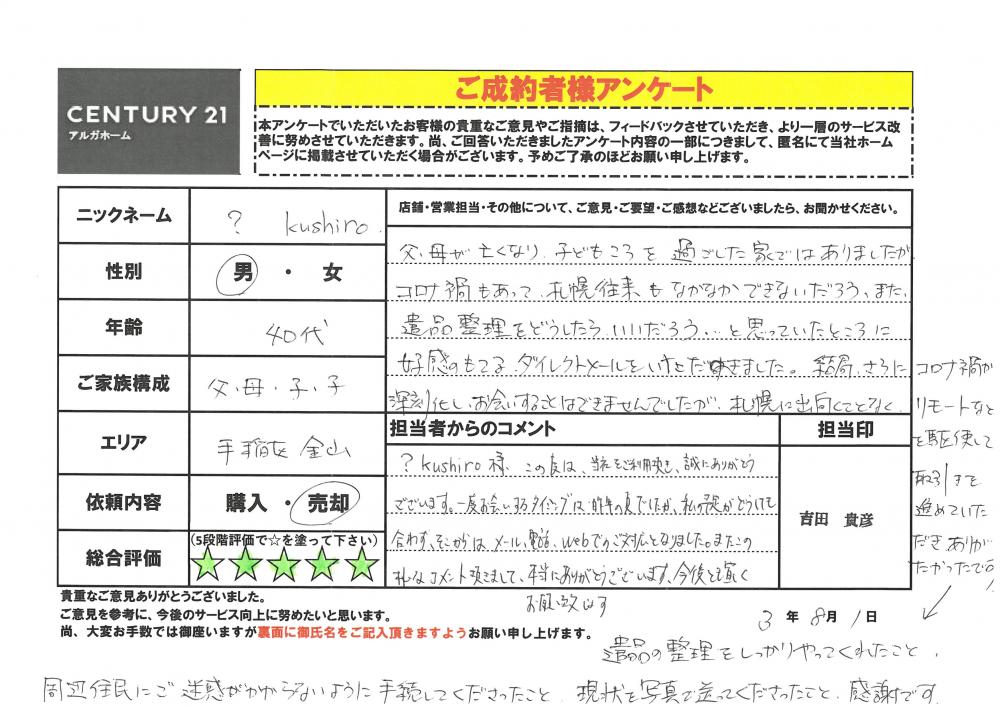 CENTURY 21
アルガホーム
ご成約者様アンケート
本アンケートでいただいたお客様の貴重なご意見やご指摘は、フィードバックさせていただき、より一層のサービス改
善に努めさせていただきます。尚、ご回答いただきましたアンケート内容の一部につきまして、匿名にて当社ホーム
ページに掲載させていただく場合がございます。予めご了承のほどお願い申し上げます。
ニックネーム
? kushiro.
性別
男 ・ 女
年齢
40代
ご家族構成
父・母・子・子
エリア
手稲区 金山
依頼内容
購入 ・ 売却
総合評価
(5段階評価で☆を塗って下さい)
店舗・営業担当・その他について、ご意見・ご要望・ご感想などございましたら、お聞かせください。
父、母が亡くなり、子どもころを過ごした家ではありましたが
コロナ禍もあって、札幌往来もなかなかできないだろう、また、
遺品整理をどうしたらいいだろう…と思っていたところに
好感のもてるダイレクトメールをいただきました。結局、さらに
深刻化し、お会いすることはできませんでしたが、札幌に出向くことなく
コロナ禍が
リモートなど
を駆使して
取引まで
進めていた
だきありが
たかったです。
遺品の整理をしっかりやってくれたこと、
周辺住民にご迷惑がかからないように手続してくださったこと、現状を写真で送ってくださったこと、感謝です。
担当者からのコメント
担当印
? kushiro様、この度は、当社をご利用頂き、誠にありがとう
ございます。一度お会いするタイミングは昨年の夏でしたが、私の予定がどうしても
合わず、そこからは、メール、電話、webでのご対応となりました。またこの
様なコメント頂きまして、本当にありがとうございます。今後とも宜しく
お願い致します
吉田 貴彦
貴重なご意見ありがとうございました。
ご意見を参考に、今後のサービス向上に努めたいと思います。
尚、大変お手数では御座いますが裏面に御氏名をご記入頂きますようお願い申し上げます。
3 年 8 月 1 日